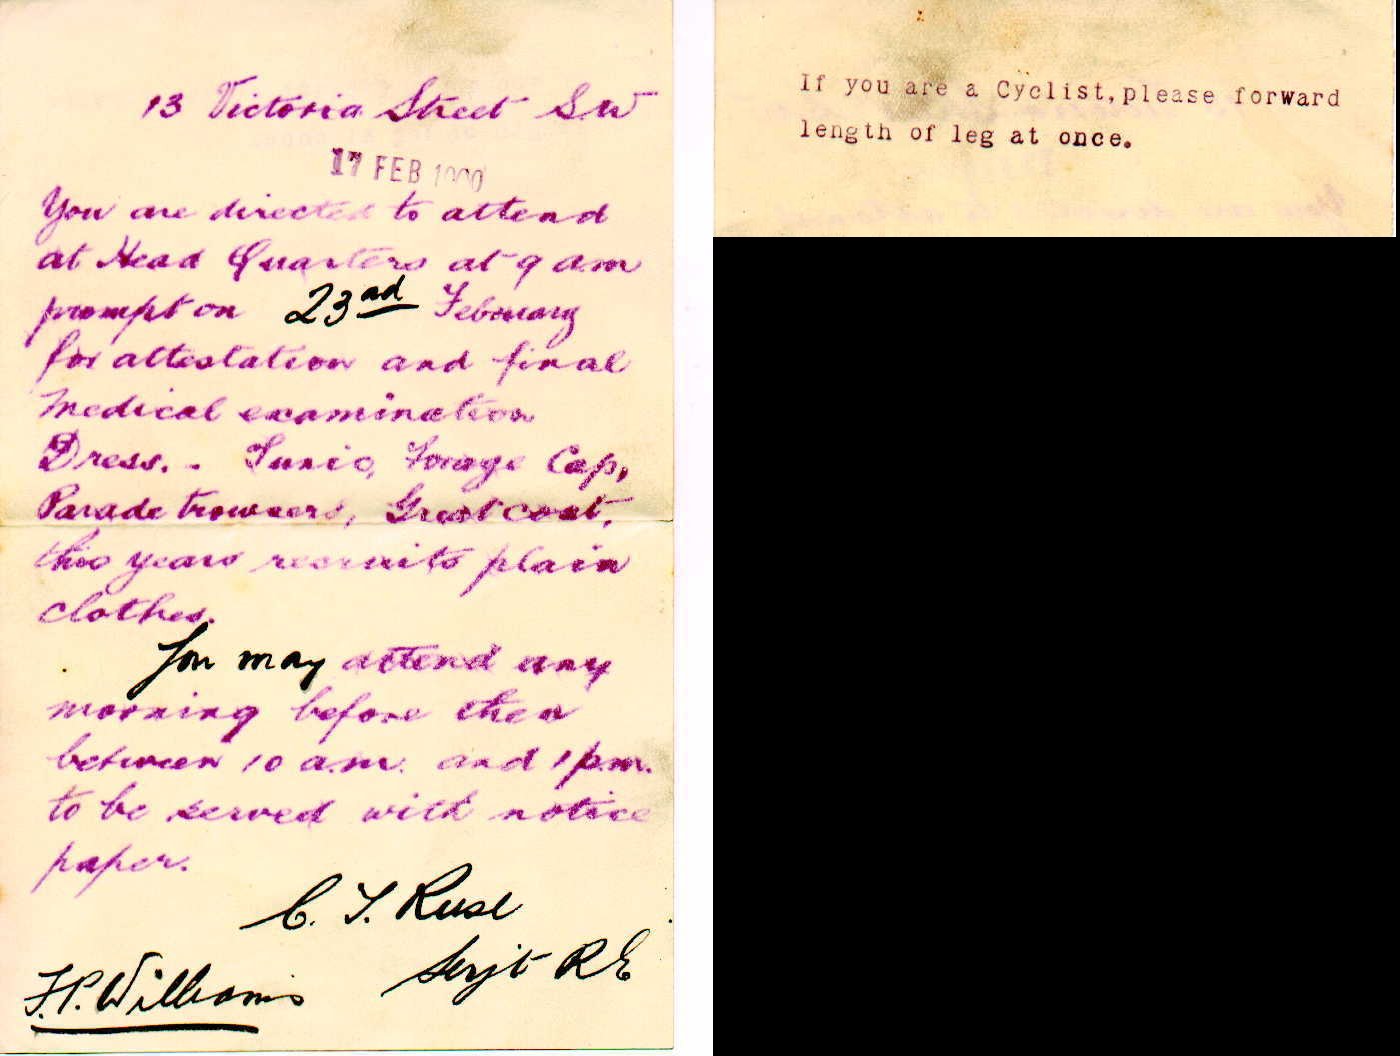 13 Victoria Street SW
17 FEB 1900
You are directed to attend
at Head Quarters at 9 am
prompt on 23rd February
for attestation and final
Medical examination
Dress. - Tunic, Forage Cap,
Parade trowsers, Great coat,
this years recruits plain
clothes.
You may attend any
morning before then
between 10 a.m. and 1 p.m.
to be served with notice
paper.
C. T. Ruse
Serjt R E
F.P. Williams
If you are a Cyclist,please forward
length of leg at once.